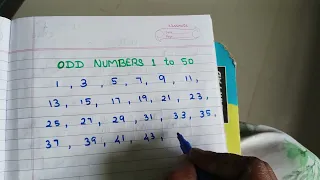 ODD NUMBERS 1 to 50
1, 3, 5, 7, 9, 11,
13, 15, 17, 19, 21, 23,
25, 27, 29, 31, 33, 35,
37, 39, 41, 43,